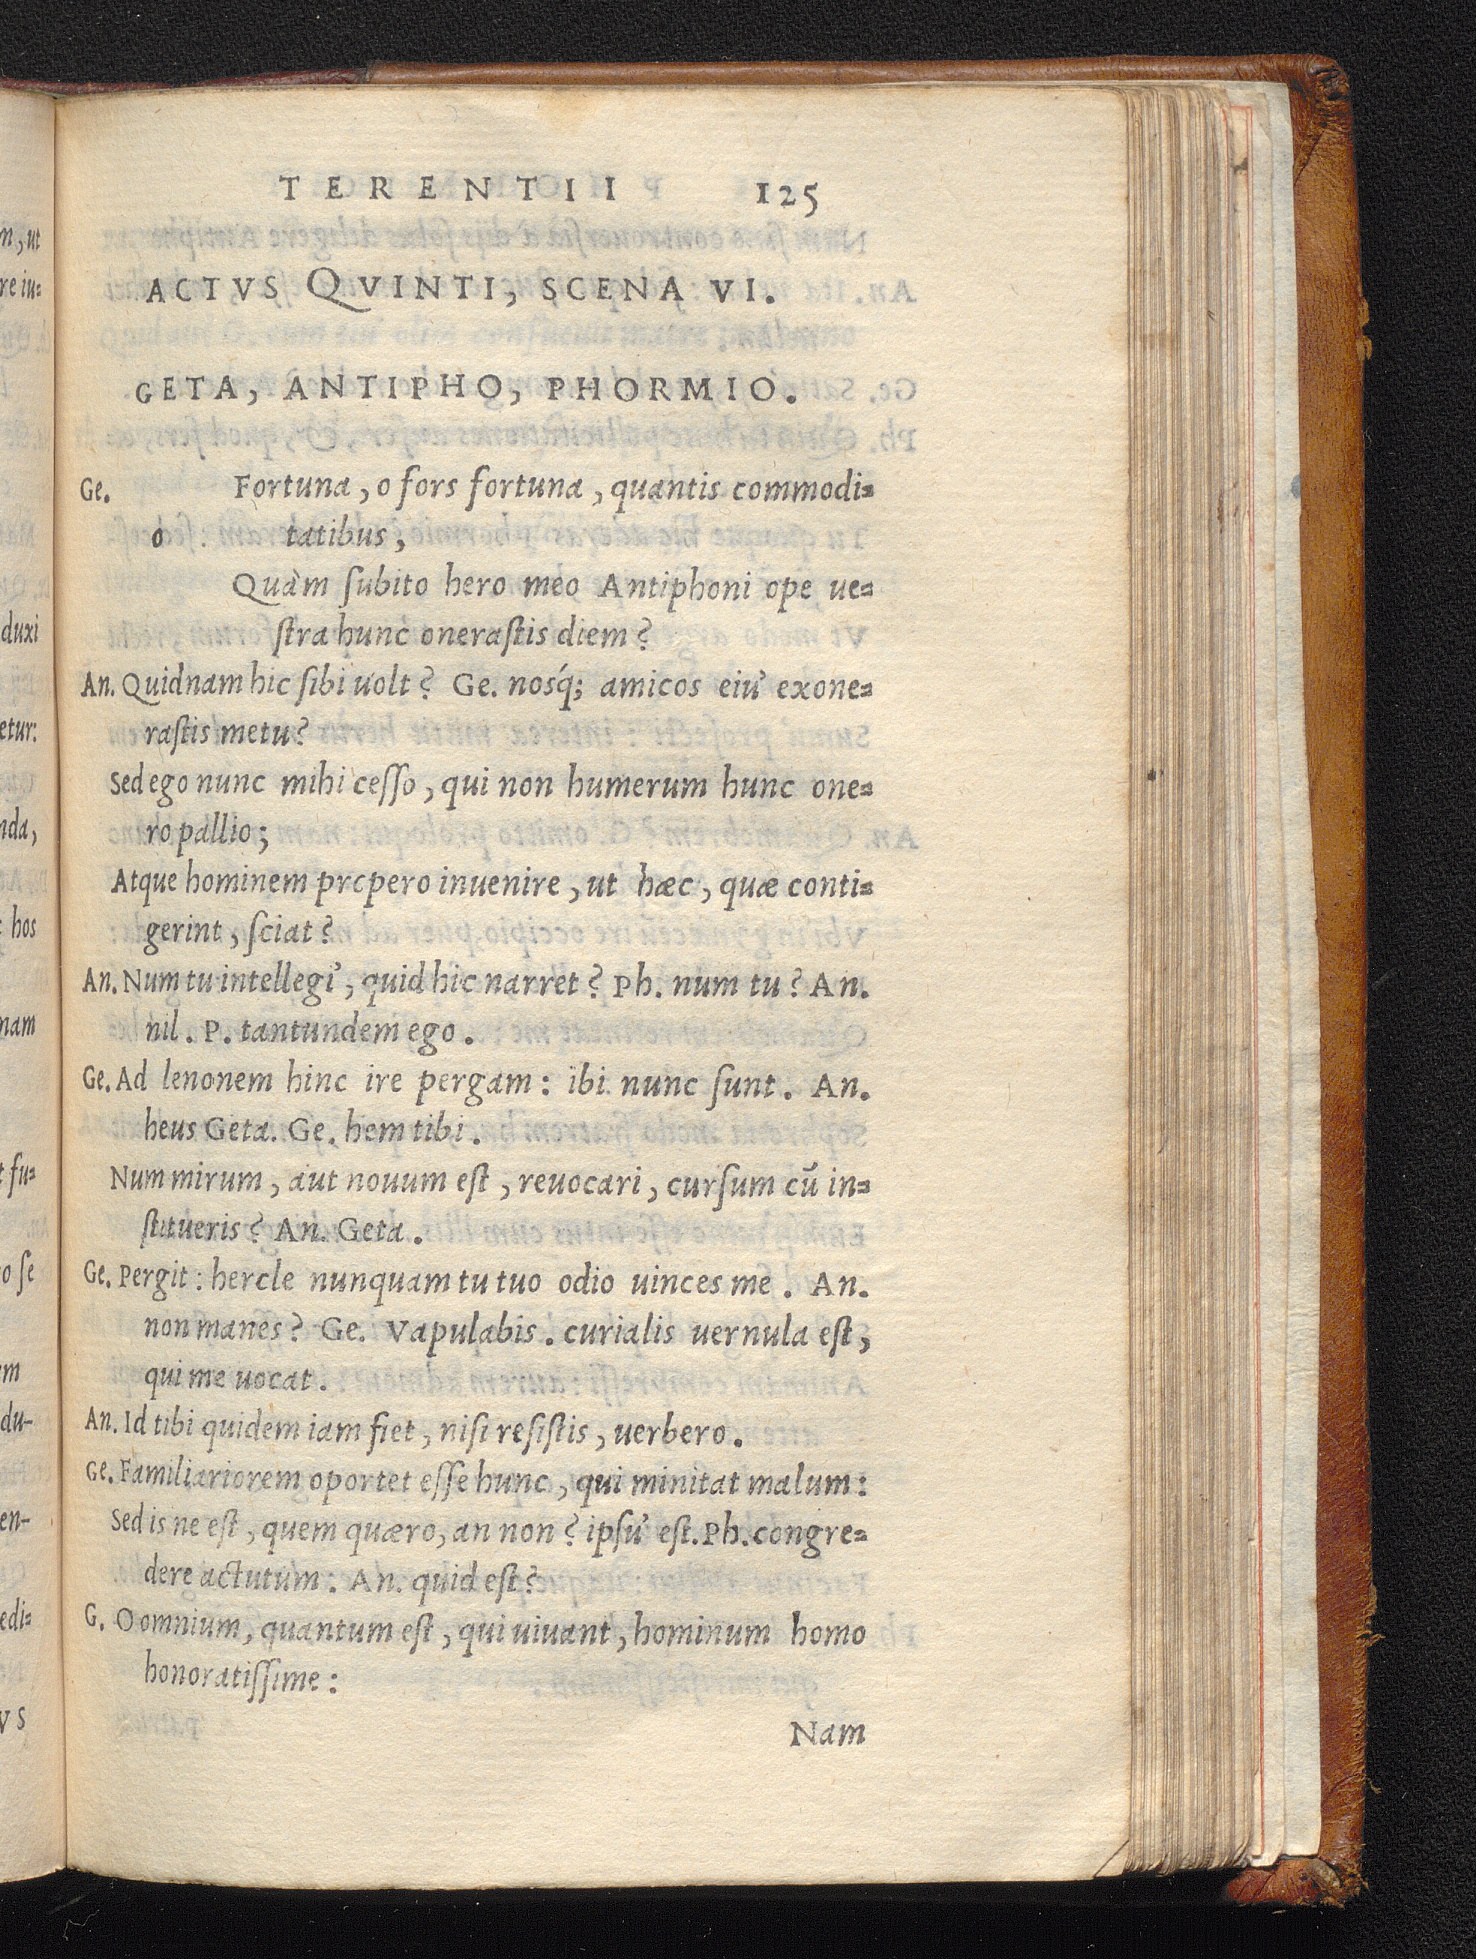 TERENTII 125
ACTVS QVINTI, SCENA VI.
GETA, ANTIPHO, PHORMIO.
Ge. Fortuna, o fors fortuna, quantis commodi=
o tatibus,
Quàm ſubito hero meo Antiphoni ope ue=
ſtra hunc oneraſtis diem?
An. Quidnam hic ſibi uolt? Ge. nosq́; amicos eiuꝰ exone=
raſtis metu?
Sed ego nunc mihi ceſſo, qui non humerum hunc one=
ro pallio;
Atque hominem prcpero inuenire, ut hæc, quæ conti=
gerint, ſciat?
An. Num tu intellegiꝰ, quid hic narret? Ph. num tu? An.
nil. P. tantundem ego.
Ge. Ad lenonem hinc ire pergam: ibi nunc ſunt. An.
heus Geta. Ge. hem tibi.
Num mirum, aut nouum eſt, reuocari, curſum cū in=
ſtitueris? An. Geta.
Ge. Pergit: hercle nunquam tu tuo odio uinces me. An.
non manes? Ge. Vapulabis. curialis uernula eſt,
qui me uocat.
An. Id tibi quidem iam fiet, niſi reſiſtis, uerbero.
Ge. Familiariorem oportet eſſe hunc, qui minitat malum:
Sed is ne eſt, quem quæro, an non? ipſuꝰ eſt. Ph. congre=
dere actutum. An. quid eſt?
G. O omnium, quantum eſt, qui uiuant, hominum homo
honoratiſſime:
Nam